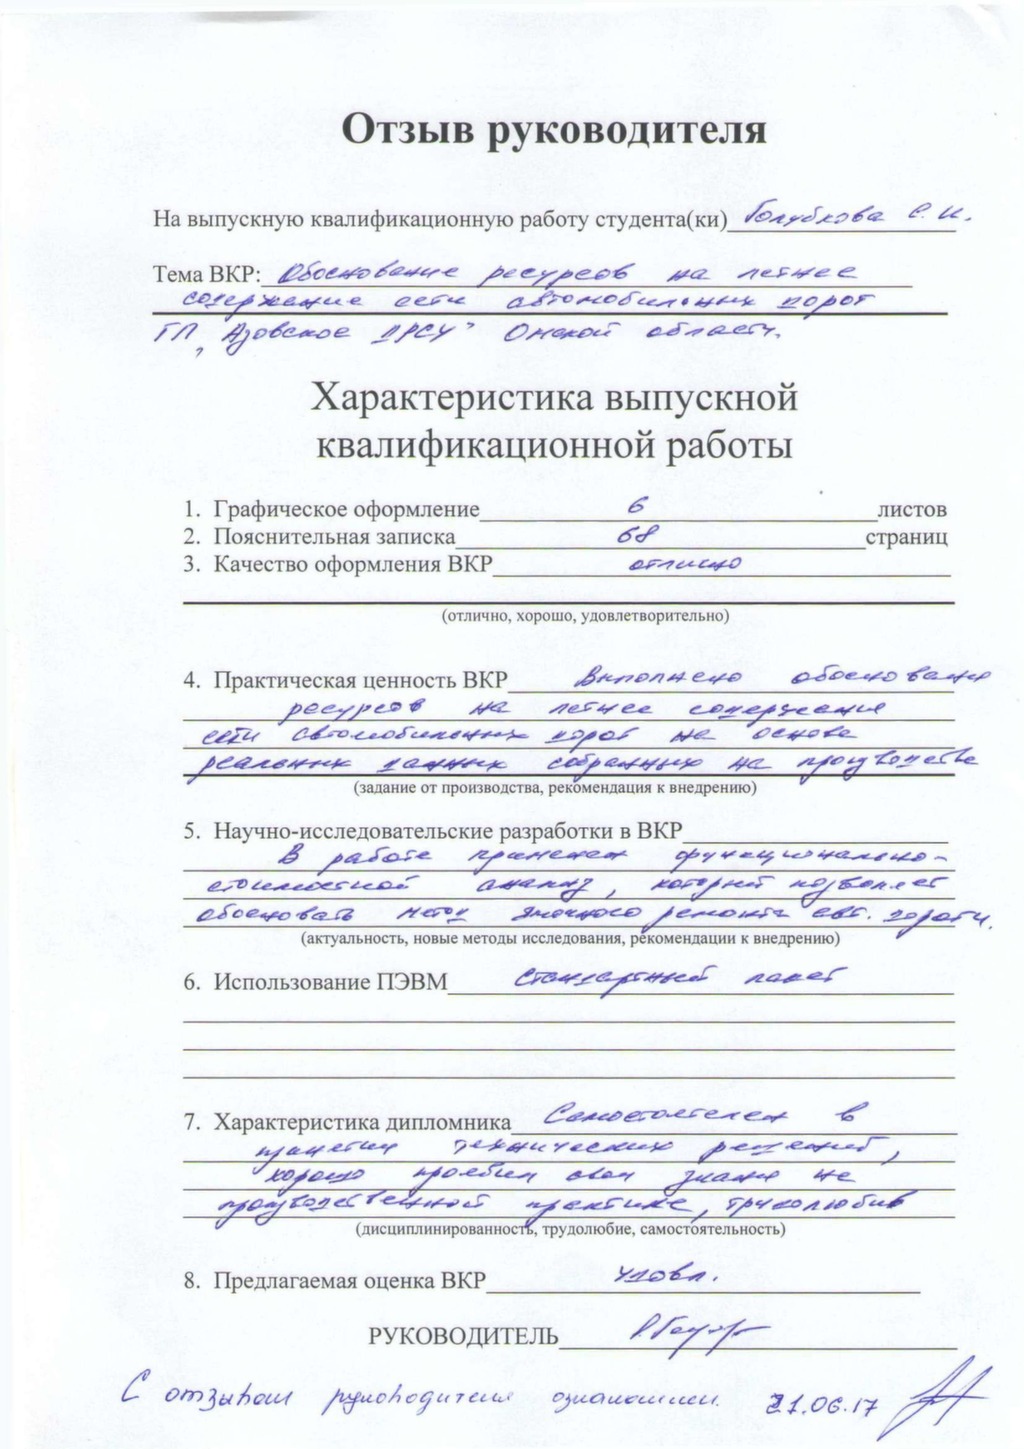 Отзыв руководителя
На выпускную квалификационную работу студента(ки) Голубкова С. И.
Тема ВКР: Обоснование ресурсов на летнее
содержание сети автомобильных дорог
ГП „Азовское ДРСУ" Омской области.
Характеристика выпускной
квалификационной работы
1. Графическое оформление 6 листов
2. Пояснительная записка 68 страниц
3. Качество оформления ВКР отлично
(отлично, хорошо, удовлетворительно)
4. Практическая ценность ВКР Выполнено обоснование
ресурсов на летнее содержание
сети автомобильных дорог на основе
реальных данных собранных на производстве
(задание от производства, рекомендация к внедрению)
5. Научно-исследовательские разработки в ВКР
В работе применен функционально-
стоимостной анализ, который позволяет
обосновать метод ямочного ремонта авт. дороги.
(актуальность, новые методы исследования, рекомендации к внедрению)
6. Использование ПЭВМ стандартный пакет
7. Характеристика дипломника Самостоятелен в
принятии технических решений,
хорошо проявил свои знания на
производственной практике, трудолюбив
(дисциплинированность, трудолюбие, самостоятельность)
8. Предлагаемая оценка ВКР удовл.
РУКОВОДИТЕЛЬ
С отзывом руководителя ознакомлен. 21.06.17